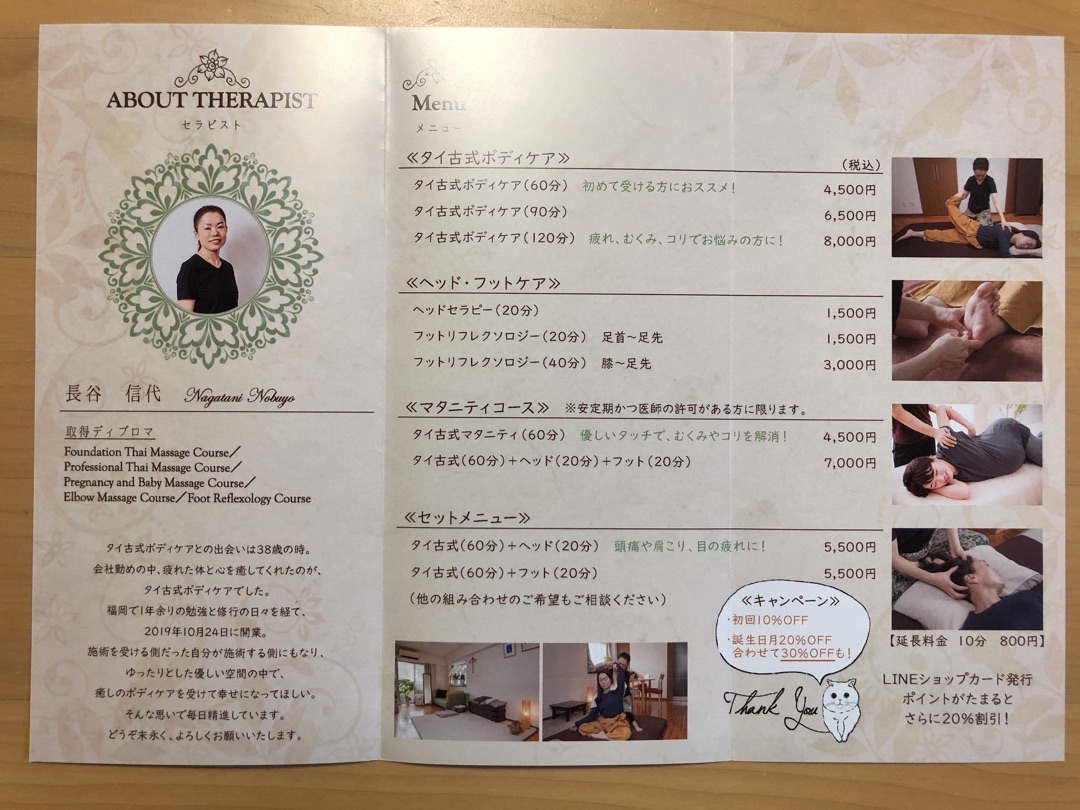 ABOUT THERAPIST
セラピスト
長谷 信代 Nagatani Nobuyo
取得ディプロマ
Foundation Thai Massage Course/
Professional Thai Massage Course/
Pregnancy and Baby Massage Course/
Elbow Massage Course/Foot Reflexology Course
タイ古式ボディケアとの出会いは38歳の時。
会社勤めの中、疲れた体と心を癒してくれたのが、
タイ古式ボディケアでした。
福岡で1年余りの勉強と修行の日々を経て、
2019年10月24日に開業。
施術を受ける側だった自分が施術する側にもなり、
ゆったりとした優しい空間の中で、
癒しのボディケアを受けて幸せになってほしい。
そんな思いで毎日精進しています。
どうぞ末永く、よろしくお願いいたします。
Menu
メニュー
≪タイ古式ボディケア≫ (税込)
タイ古式ボディケア(60分) 初めて受ける方におススメ! 4,500円
タイ古式ボディケア(90分) 6,500円
タイ古式ボディケア(120分) 疲れ、むくみ、コリでお悩みの方に! 8,000円
≪ヘッド・フットケア≫
ヘッドセラピー(20分) 1,500円
フットリフレクソロジー(20分) 足首~足先 1,500円
フットリフレクソロジー(40分) 膝~足先 3,000円
≪マタニティコース≫ ※安定期かつ医師の許可がある方に限ります。
タイ古式マタニティ(60分) 優しいタッチで、むくみやコリを解消! 4,500円
タイ古式(60分)+ヘッド(20分)+フット(20分) 7,000円
≪セットメニュー≫
タイ古式(60分)+ヘッド(20分) 頭痛や肩こり、目の疲れに! 5,500円
タイ古式(60分)+フット(20分) 5,500円
(他の組み合わせのご希望もご相談ください)
≪キャンペーン≫
・初回10%OFF
・誕生日月20%OFF
合わせて30%OFFも!
Thank You
【延長料金 10分 800円】
LINEショップカード発行
ポイントがたまると
さらに20%割引!